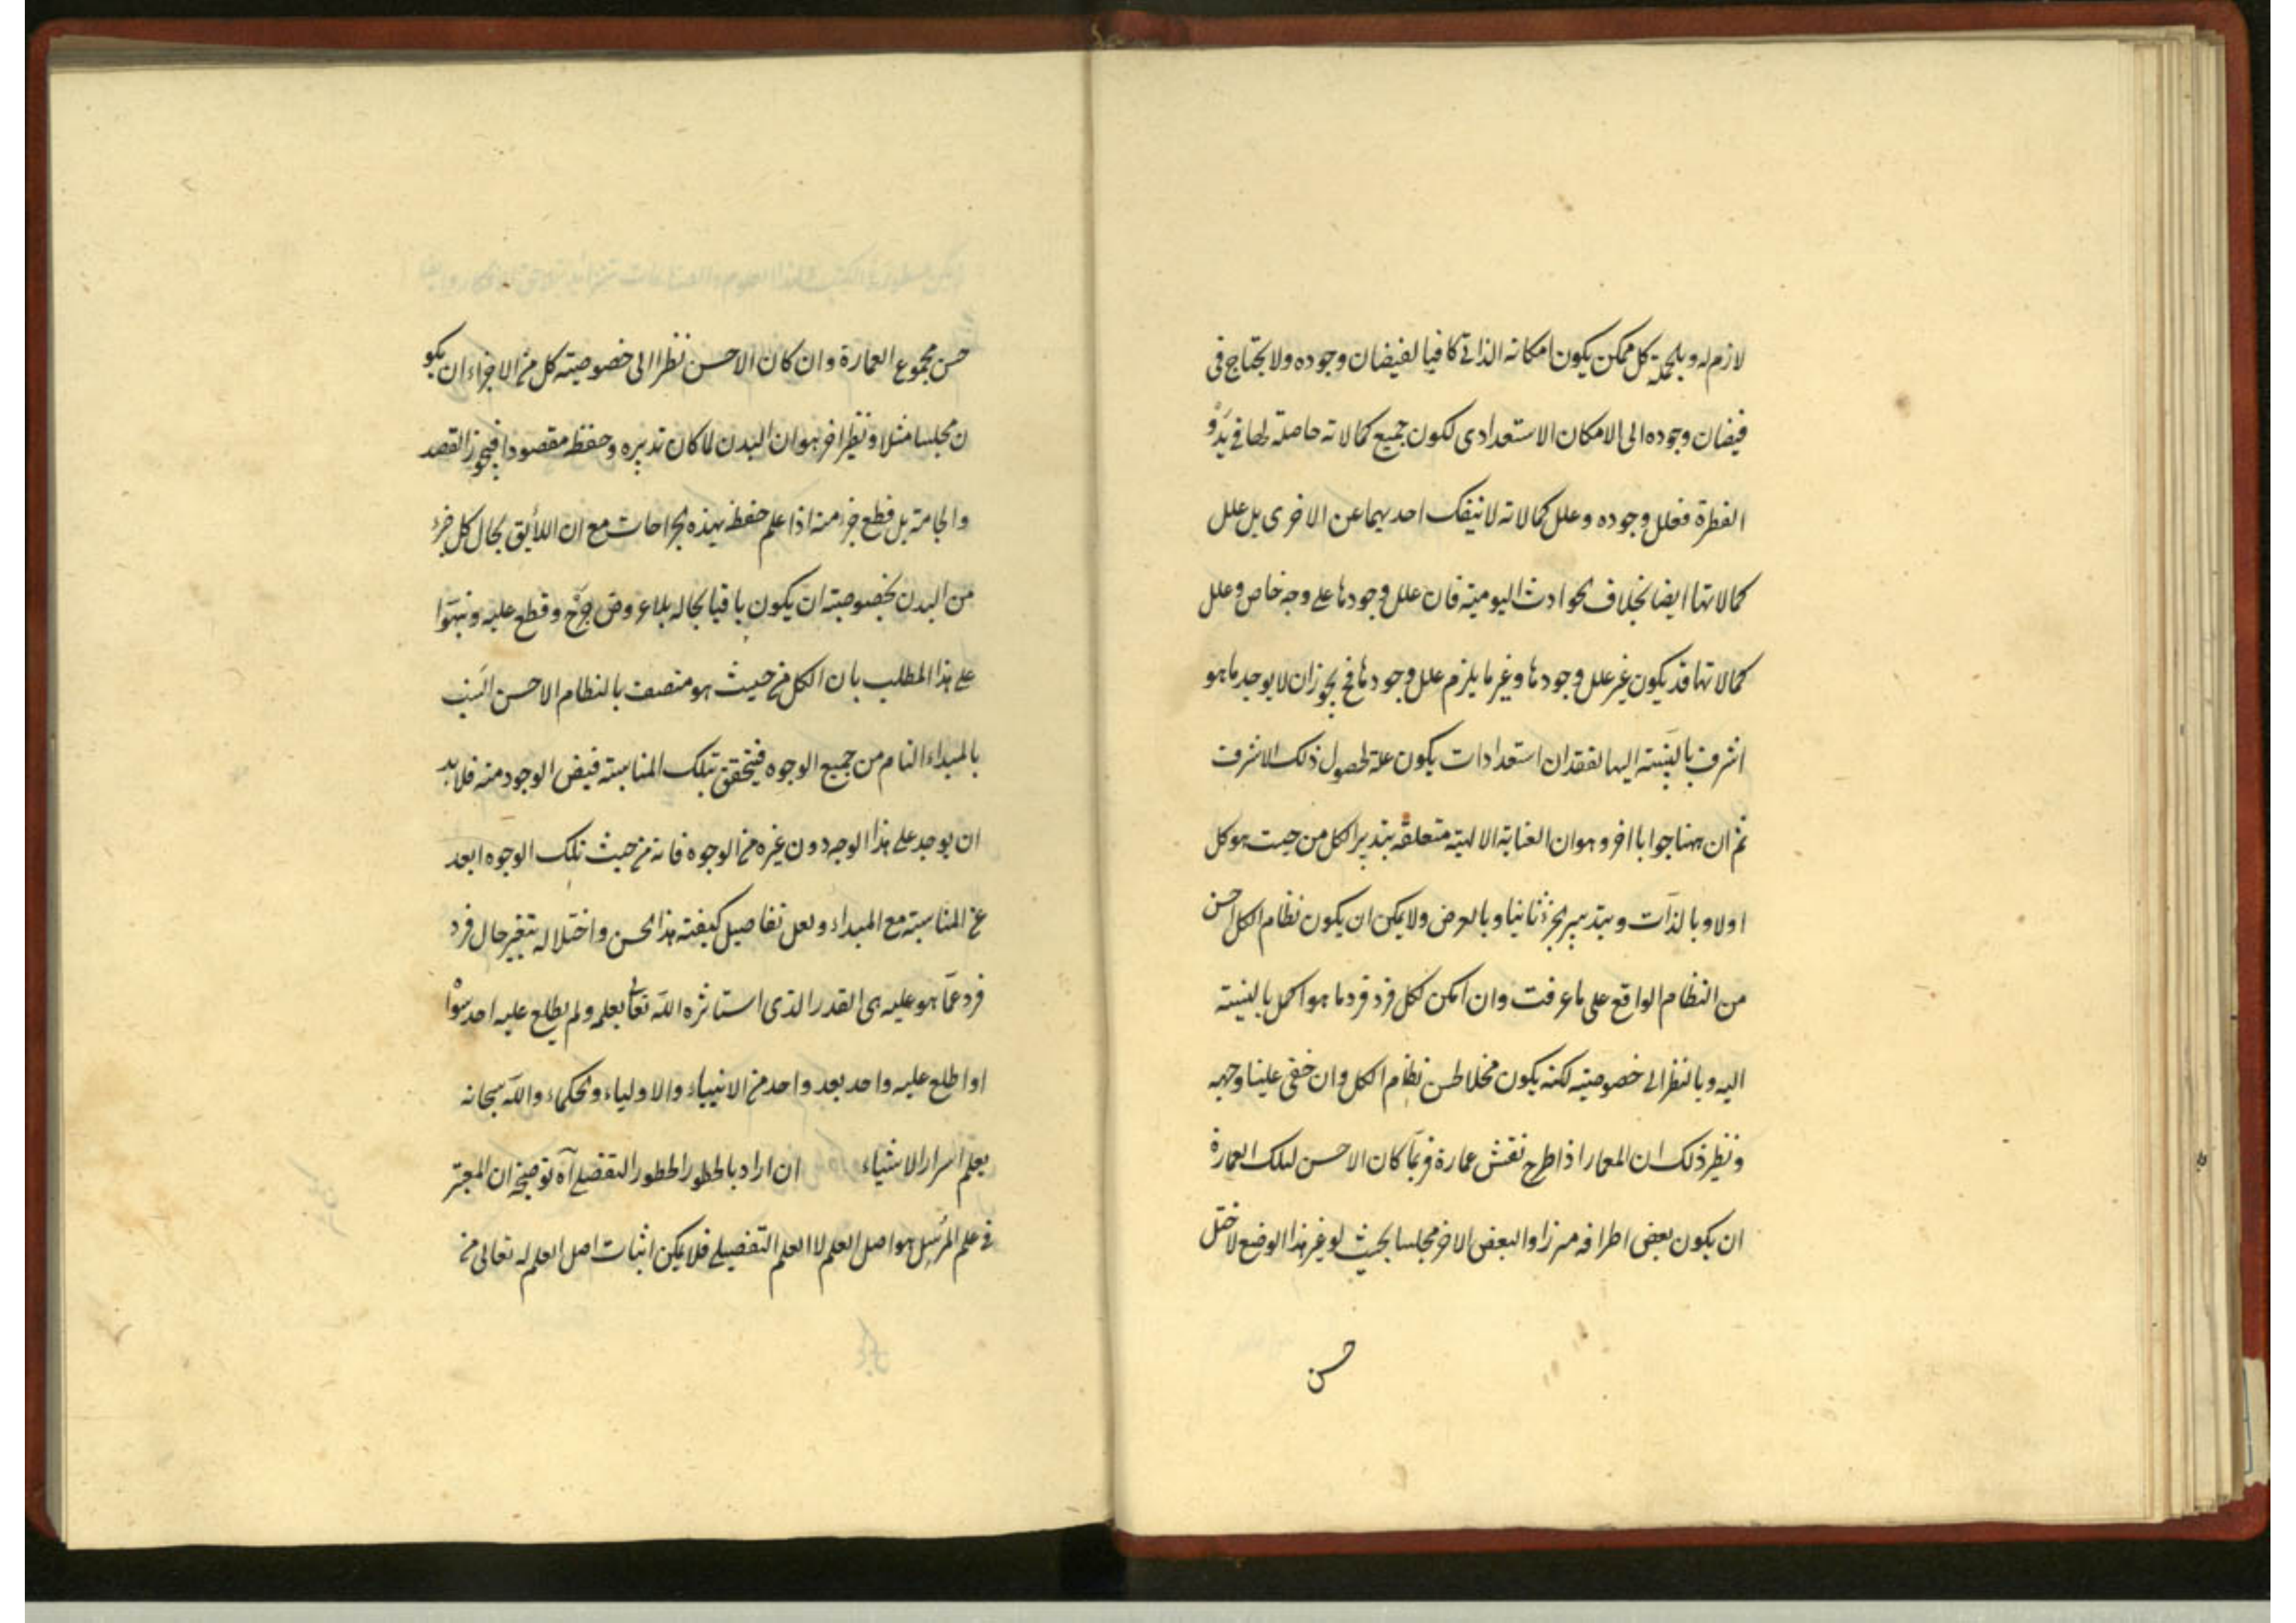 لازم له وبالجملة كل ممكن يكون امكانه الذاتى كافيا لفيضان وجوده ولا يحتاج فى
فيضان وجوده الى الامكان الاستعدادى لكون جميع كمالاته حاصلة لها فى بدو
الفطرة فعلل وجوده وعلل كمالاته لا ينفك احديهما عن الاخرى بل علل
كمالاتها ايضا بخلاف الحوادث اليومية فان علل وجودها على وجه خاص وعلل
كمالاتها قد يكون غير علل وجودها وغير ما يلزم علل وجودها فح يجوز ان لا يوجد ما هو
اشرف بالنسبة اليها لفقدان استعدادات يكون علة لحصول ذلك الاشرف
ثم ان ههنا جوابا اخر وهو ان العناية الالهية متعلقة بتدبير الكل من حيث هو كل
اولا وبالذات وبتدبير الجزء ثانيا وبالعرض ولا يمكن ان يكون نظام الكل احسن
من النظام الواقع على ما عرفت وان امكن لكل فرد فرد ما هو اكمل بالنسبة
اليه وبالنظر الى خصوصيته لكنه يكون مخلا لحسن نظام الكل وان خفى علينا وجهه
ونظير ذلك ان المعمار اذا طرح نقش عمارة فربما كان الاحسن لتلك العمارة
ان يكون بعض اطرافه مبرزا والبعض الاخر مجلسا بحيث لو غير هذا الوضع لاختل
حسن
حسن مجموع العمارة وان كان الاحسن نظرا الى خصوصيته كل من الاجزاء ان يكو
ن مجلسا مثلا ونظير اخر هو ان البدن لما كان تدبيره وحفظه مقصودا فيجوز القصد
والحجامة بل قطع جزء منه اذا علم حفظه بهذه الجراحات مع ان اللأيق بحال كل جزء
من البدن بخصوصيته ان يكون باقيا بحاله بلا عروض جرح وقطع عليه ونبهوا
على هذا المطلب بان الكل من حيث هو متصف بالنظام الاحسن انسب
بالمبداء التام من جميع الوجوه فيتحقق بتلك المناسبة فيض الوجود منه فلا بد
ان يوجد على هذا الوجه دون غيره من الوجوه فانه من حيث تلك الوجوه ابعد
عن المناسبة مع المبداء ولعل تفاصيل كيفية هذا الحسن واختلاله بتغير حال فرد
فرد عما هو عليه هى القدر الذى استاثره الله تعالى بعلمه ولم يطلع عليه احد سواه
او اطلع عليه واحد بعد واحد من الانبياء والاولياء والحكماء والله سبحانه
يعلم اسرار الاشياء ان اراد بالخطور الخطور التفضيلى آه توضيحه ان المعتبر
فى علم المرسل هو اصل العلم لا العلم التفضيلى فلا يمكن اثبات اصل العلم له تعالى من